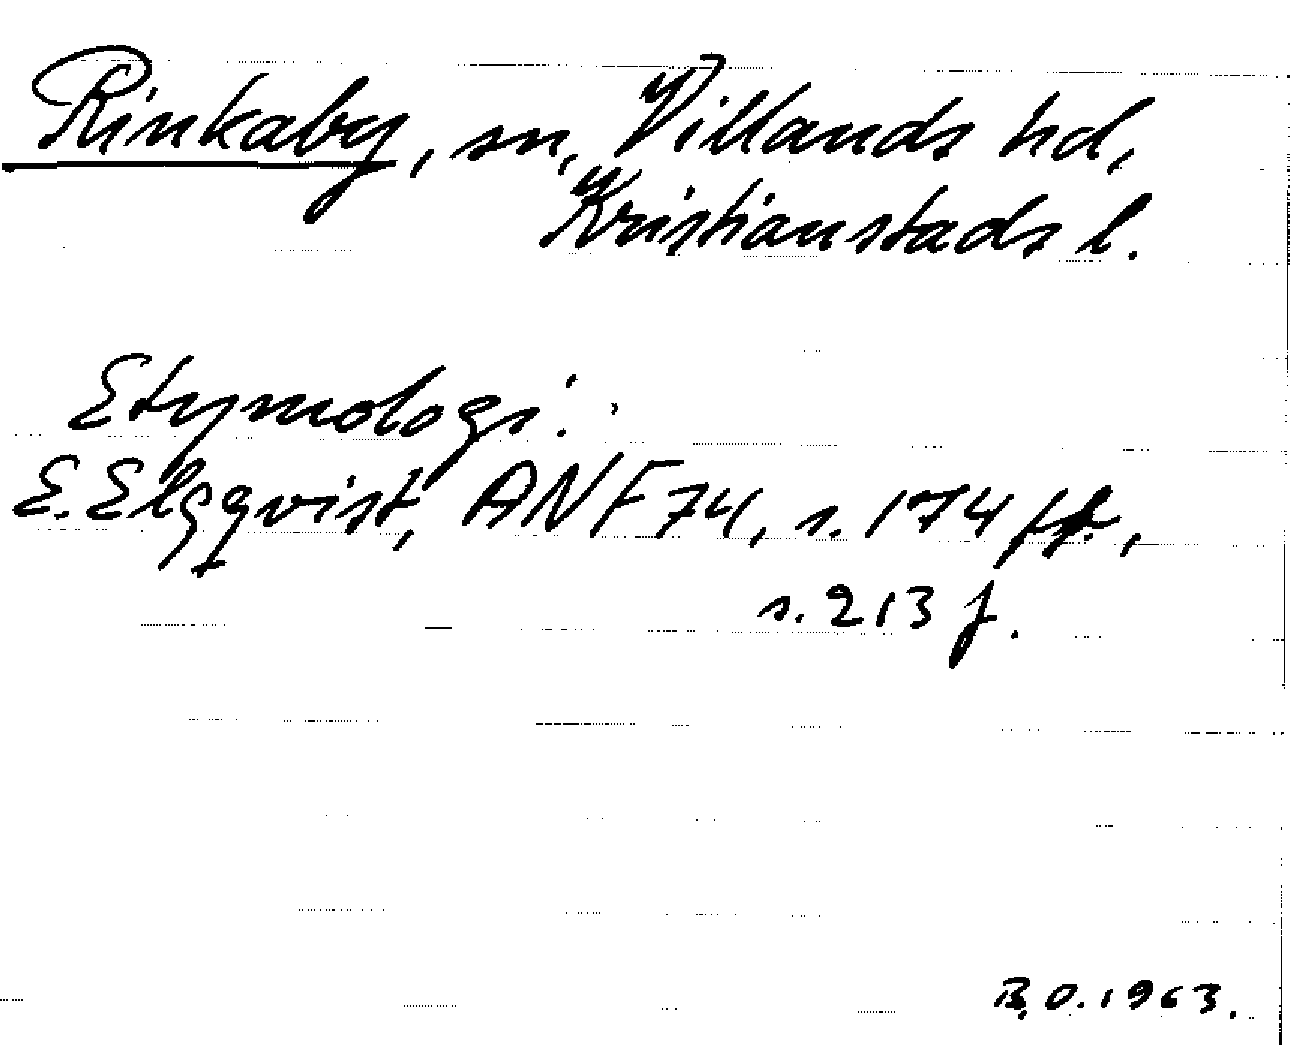 Rinkaby, sn, Villands hd,
Kristianstads l.
Etymologi:
E. Elgqvist, ANF 74, s. 174 ff.,
s. 213 f.
B.O. 1963.